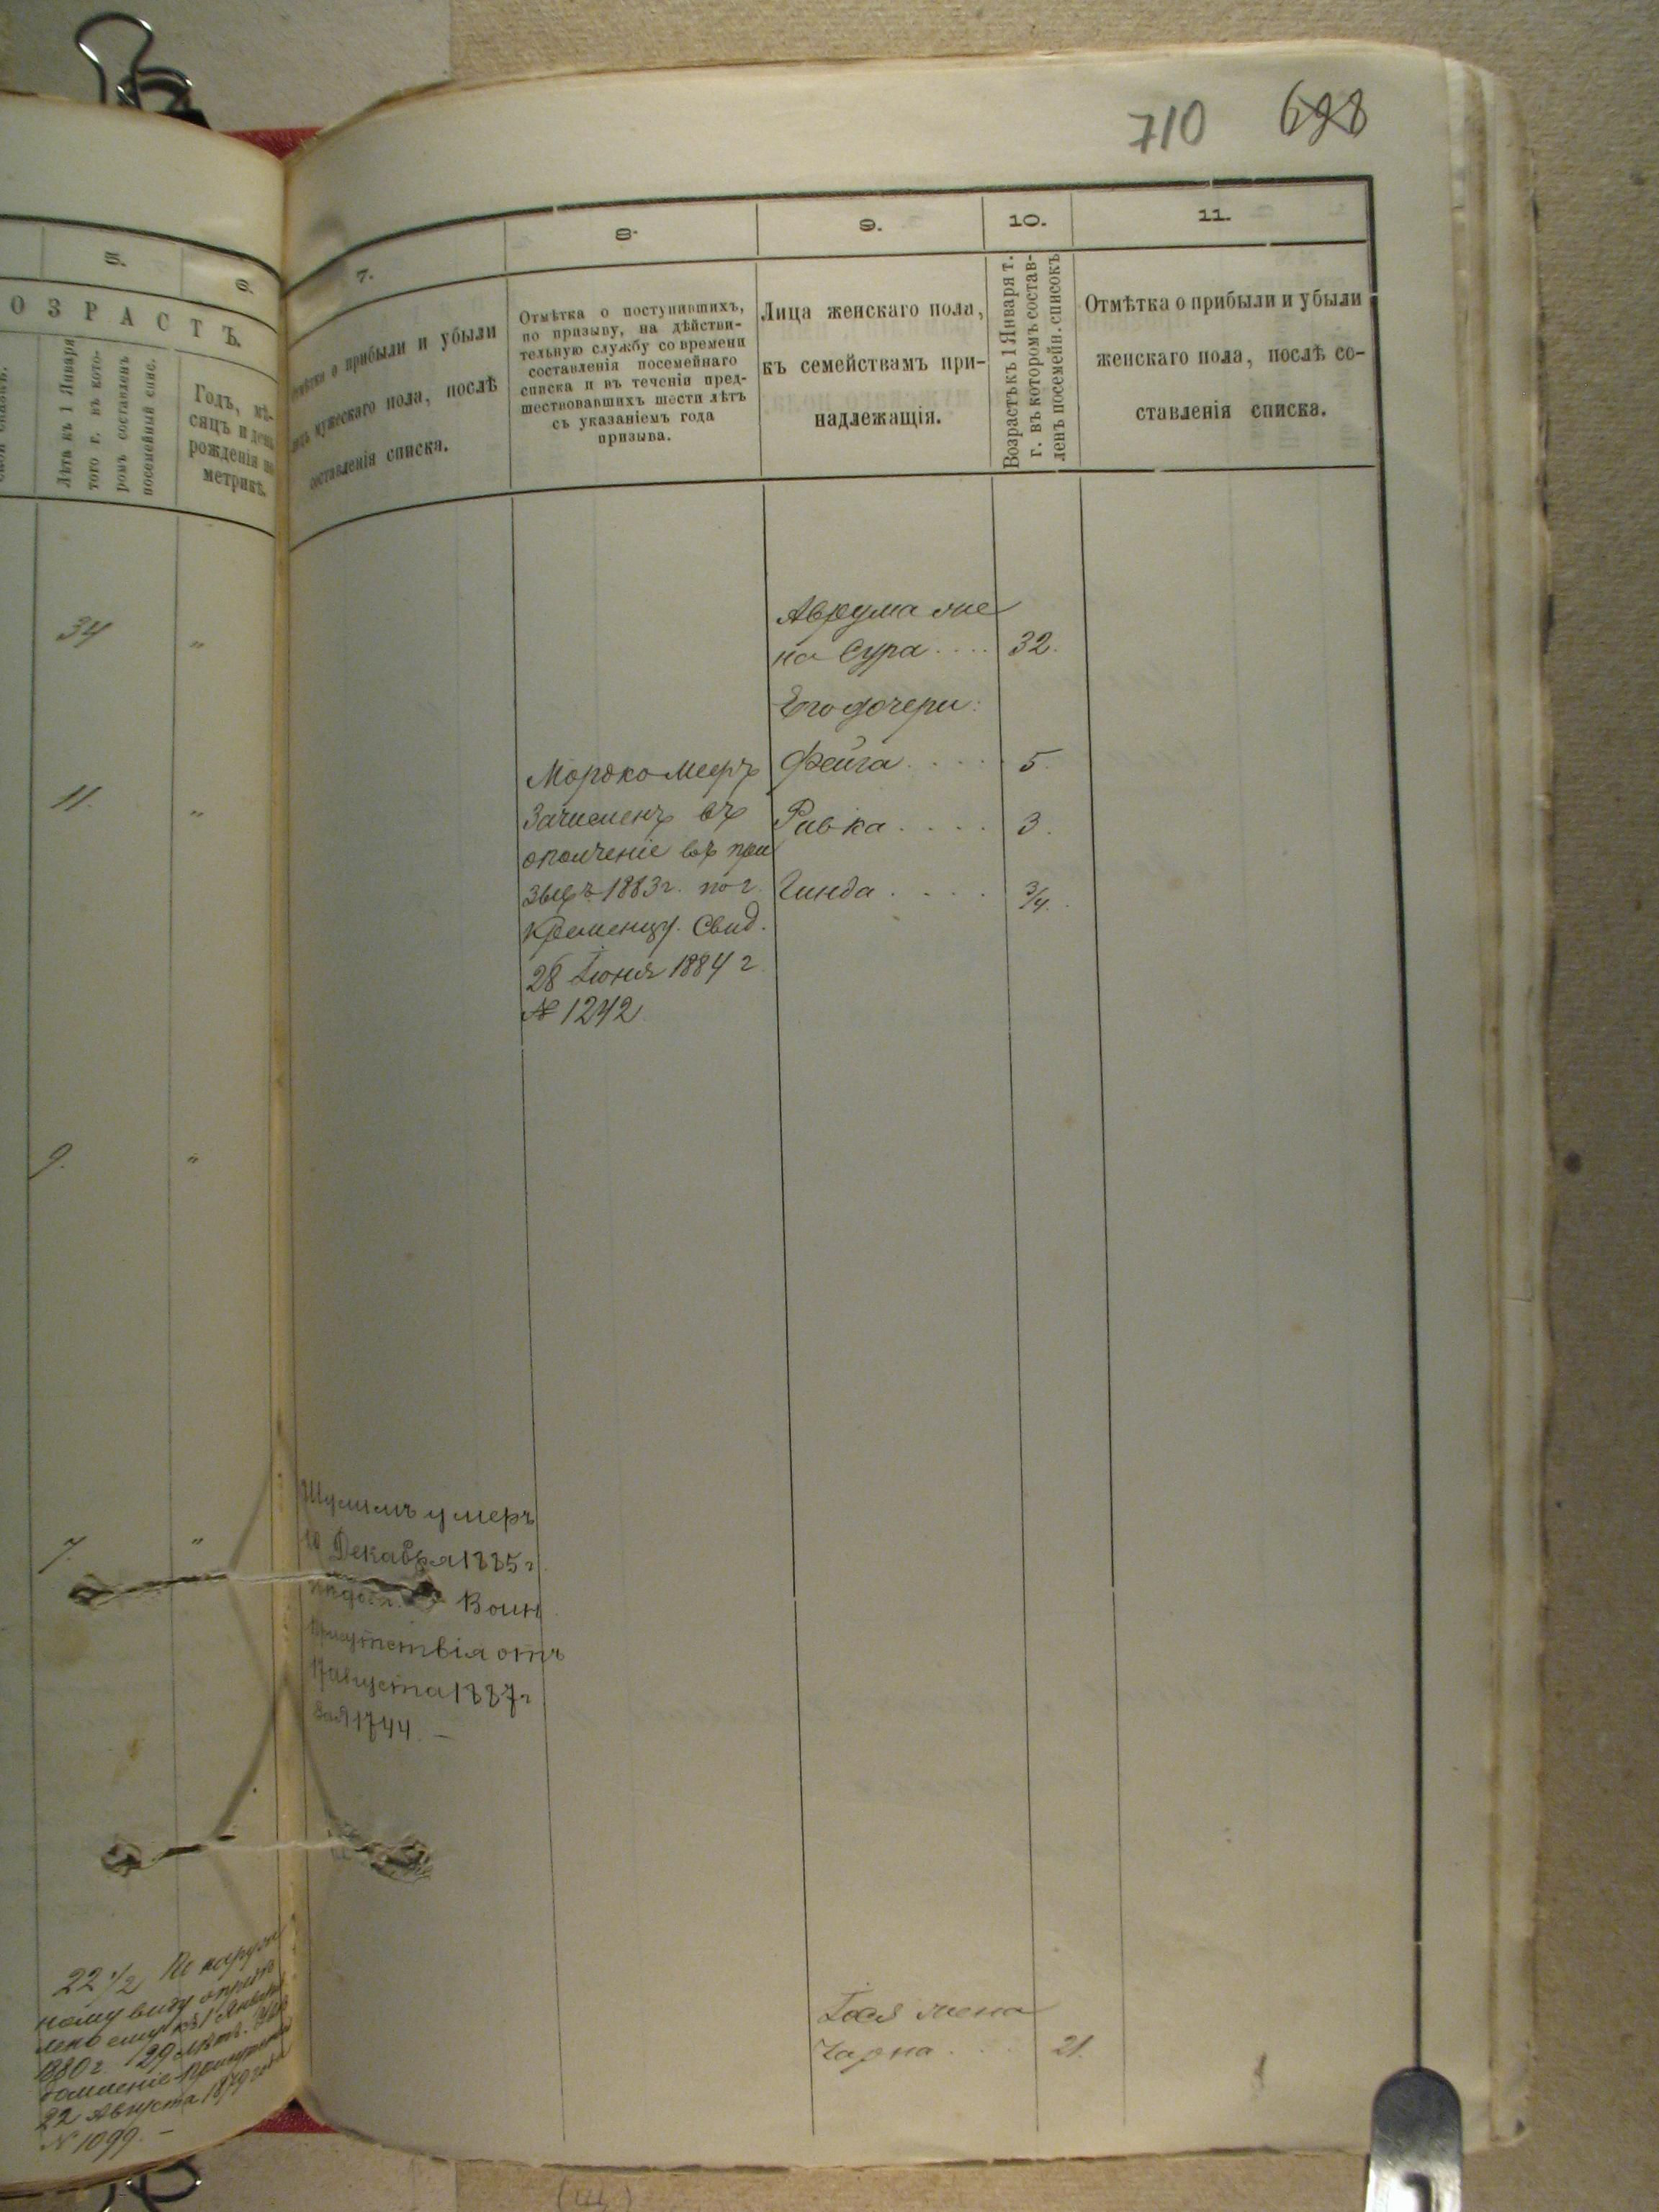 710 698
5.
6.
ОЗРАСТЪ.
Лѣта къ 1 Января
того г. въ кото-
ромъ составленъ
посемейный спис.
Годъ, мѣ-
сяцъ и день
рожденія по
метрикѣ.
34 "
11. "
9. "
7. "
22 1/2 По наруж
ному виду опредѣ
лено ему къ 1 Января
1880 г. 29 лѣтъ.
22 Августа 1879 года
№ 1099. —
7.
8.
9.
10.
11.
о прибыли и убыли
лицъ мужескаго пола, послѣ
составленія списка.
Отмѣтка о поступившихъ,
по призыву, на дѣйстви-
тельную службу со времени
составленія посемейнаго
списка и въ теченіи пред-
шествовавшихъ шести лѣтъ
съ указаніемъ года
призыва.
Лица женскаго пола,
къ семействамъ при-
надлежащія.
Возрастъ къ 1 Января т.
г. въ которомъ состав-
ленъ посемейн. списокъ
Отмѣтка о прибыли и убыли
женскаго пола, послѣ со-
ставленія списка.
Аврума же
на Сура .... 32.
Его дочери:
Фейга .... 5.
Ривка .... 3.
Гинда .... 3/4.
Мордко Мееръ
Зачисленъ въ
ополченіе въ при
зывъ 1883 г. по г.
Кременцу. Свид.
28 Іюня 1884 г.
№ 1242.
Шулимъ умеръ
10 Декабря 1885 г.
Воин
Присутствія отъ
17 Августа 1887 г
за № 1744. —
жена
Чарна ... 21.